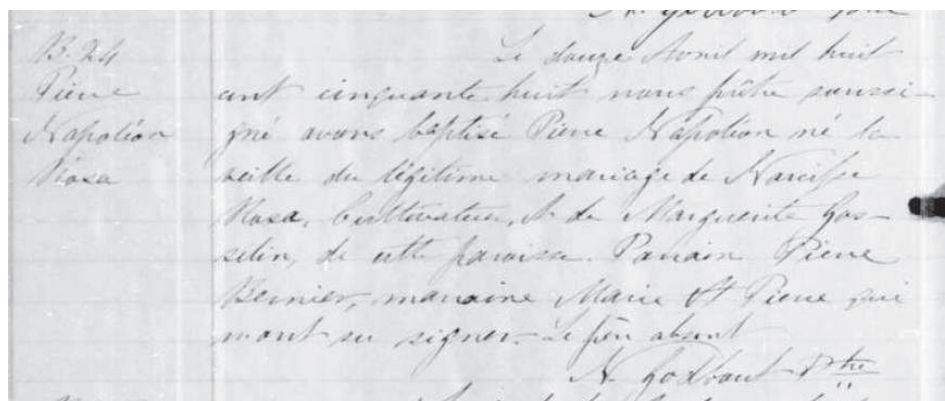 B. 24
Pierre
Napoléon
Rosa
Le douze Avril mil huit
cent cinquante huit nous prêtre soussi-
gné avons baptisé Pierre Napoléon né la
veille du légitime mariage de Narcisse
Rosa, Cultivateur, & de Marguerite Gos-
selin, de cette paroisse. Parrain Pierre
Bernier, marraine Marie St Pierre qui
n'ont su signer. Le père absent
N. Godbout Ptre